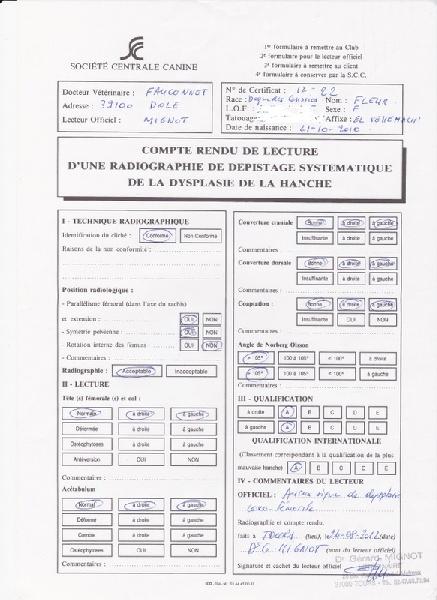 SOCIÉTÉ CENTRALE CANINE
1er formulaire à remettre au Club
2e formulaire pour le lecteur officiel
3e formulaire à remettre au client
4e formulaire à conserver par la S.C.C.
Docteur Vétérinaire : FAUCONNET
Adresse : 39100 DOLE
Lecteur Officiel : MIGNOT
N° de Certificat : 12 - 22
Race : Nom : FLEUR
L.O.F. Sexe : F
Tatouage Affixe :
Date de naissance : 21-10-2010
COMPTE RENDU DE LECTURE
D'UNE RADIOGRAPHIE DE DEPISTAGE SYSTEMATIQUE
DE LA DYSPLASIE DE LA HANCHE
I - TECHNIQUE RADIOGRAPHIQUE
Identification du cliché : Conforme Non Conforme
Raisons de la non conformité :
Position radiologique :
- Parallélisme fémoral (dans l'axe du rachis)
et extension : OUI NON
- Symétrie pelvienne : OUI NON
- Rotation interne des fémurs : OUI NON
- Commentaires :
Radiographie : Acceptable Inacceptable
II - LECTURE
Tête (s) fémorale (s) et col :
Normale à droite à gauche
Déformée à droite à gauche
Ostéophytoses à droite à gauche
Antéversion OUI NON
Commentaire :
Acétabulum
Normal à droite à gauche
Déformé à droite à gauche
Comblé à droite à gauche
Ostéophytoses à droite à gauche
Commentaires :
Couverture crâniale Bonne à droite à gauche
Insuffisante à droite à gauche
Commentaires :
Couverture dorsale Bonne à droite à gauche
Insuffisante à droite à gauche
Commentaires :
Coaptation : Bonne à droite à gauche
Insuffisante OUI NON
Commentaires :
Angle de Norberg Olsson
> 105° 100 à 105° < 100° à droite
> 105° 100 à 105° < 100° à gauche
Commentaires :
III - QUALIFICATION
à droite A B C D E
à gauche A B C D E
QUALIFICATION INTERNATIONALE
(Classement correspondant à la qualification de la plus
mauvaise hanche) A B C D E
IV - COMMENTAIRES DU LECTEUR
OFFICIEL : Aucun signe de dysplasie
coxo-fémorale
Radiographie et compte rendu
faits à TOURS (lieu), le 24-08-2012 (date)
Dr G. MIGNOT (nom du lecteur officiel)
Signature et cachet du lecteur officiel
Dr Gérard MIGNOT
37000 TOURS